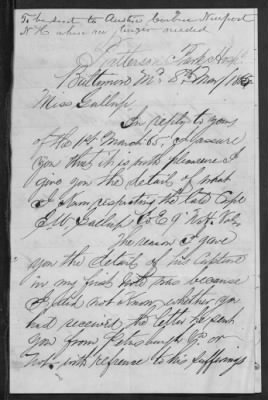 To be sent to Austin Corbin Newport
N.H. when no longer needed
Patterson Park Hos.
Baltimore Md 8th May 1865
Miss Gallup.
In reply to yours
of the 1st March 65, I assure
you that it is with pleasure I
give you the detail of what
I know respecting the late Capt
Co E 9" N.H. Vols
The reason I gave
you the details of his capture
in my first note was because
I did not know whether you
had received the letter he sent
you from Petersburgh Va. or
not. with refrence to his sufferings